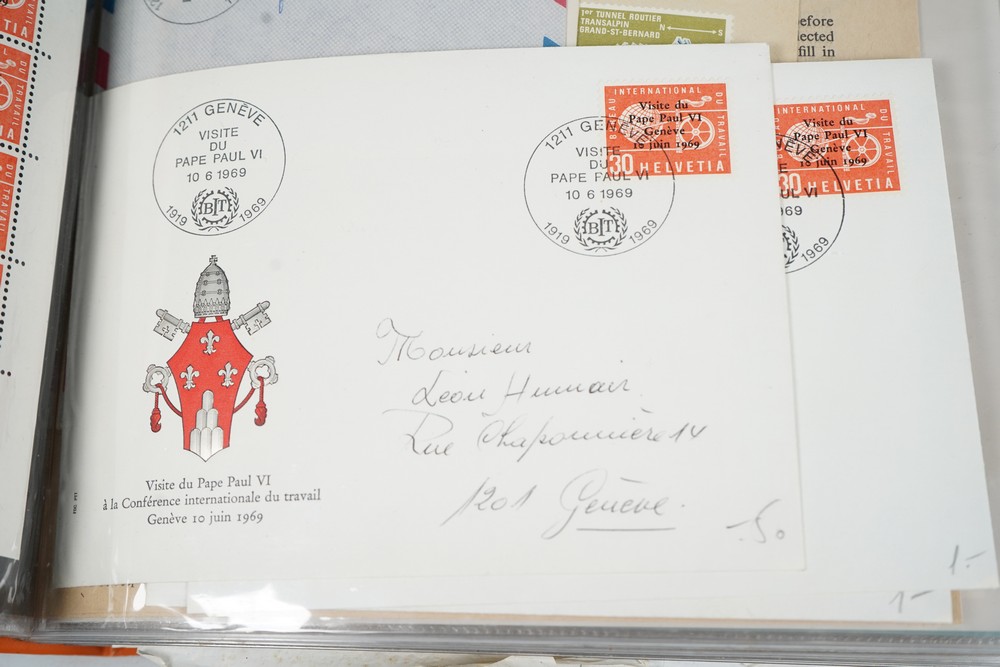 1er TUNNEL ROUTIER
TRANSALPIN
GRAND-ST-BERNARD
N
S
efore
lected
fill in
1211 GENÈVE
VISITE
DU
PAPE PAUL VI
10 6 1969
1919
BIT
1969
1211 GENÈVE
VISITE
DU
PAPE PAUL VI
10 6 1969
1919
BIT
1969
BUREAU INTERNATIONAL DU TRAVAIL
Visite du
Pape Paul VI
Genève
10 juin 1969
30 HELVETIA
INTERNATIONAL DU TRAVAIL
Visite du
Pape Paul VI
Genève
10 juin 1969
30 HELVETIA
UL VI
969
1969
DU TRAVAIL
Monsieur
Léon Humair
Rue Chaponnière 14
1201 Genève.
-.50
Visite du Pape Paul VI
à la Conférence internationale du travail
Genève 10 juin 1969
1.-
1.-